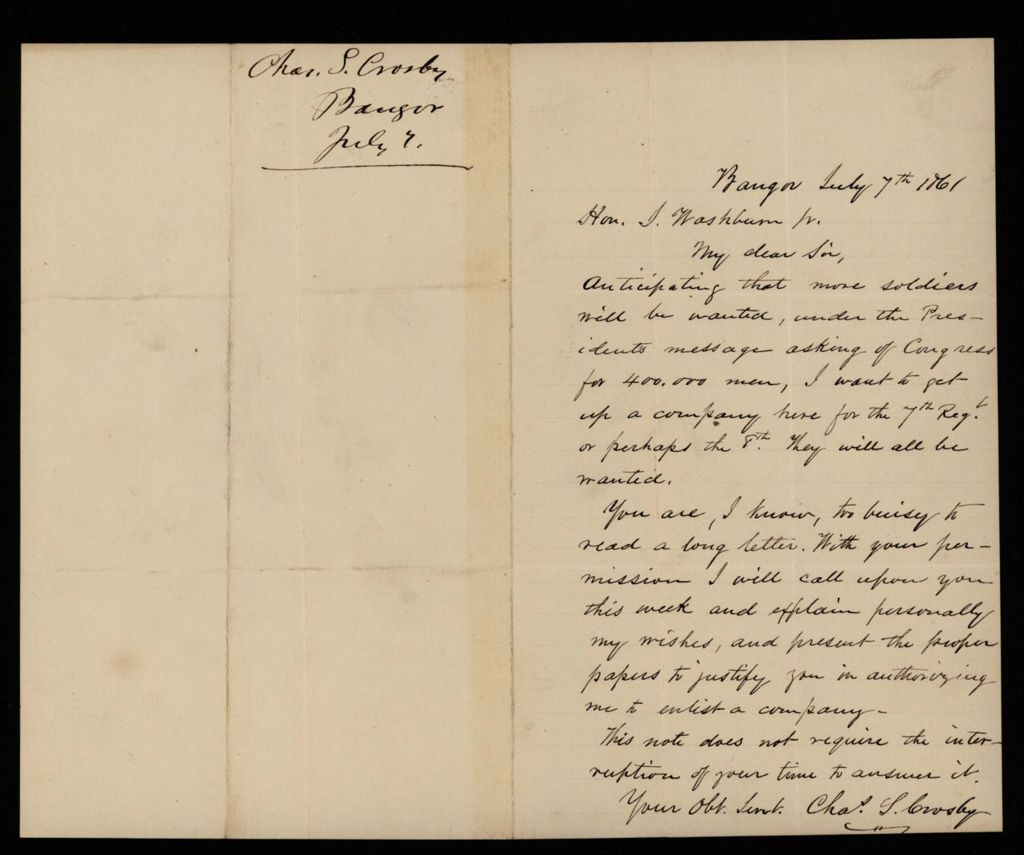 Chas. S. Crosby
Bangor
July 7.
Bangor July 7th 1861
Hon. I. Washburn jr.
My dear Sir,
Anticipating that more soldiers
will be wanted, under the Pres-
idents message asking of Congress
for 400.000 men, I want to get
up a company here for the 7th Regt.
or perhaps the 8th. They will all be
wanted.
You are, I know, too buisy to
read a long letter. With your per-
mission I will call upon you
this week and explain personally
my wishes, and present the proper
papers to justify you in authorizing
me to enlist a company-
This note does not require the inter-
ruption of your time to answer it.
Your Obt. Servt. Chas. S. Crosby